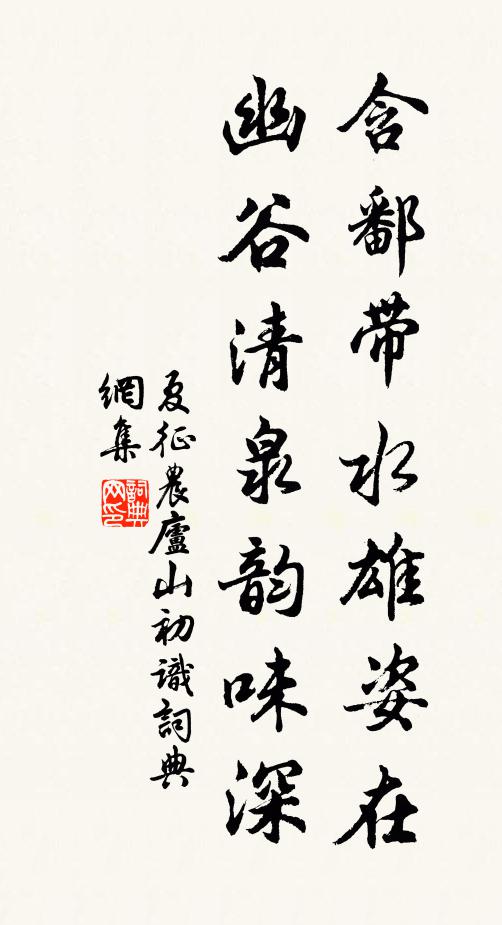 含鄱带水雄姿在
幽谷清泉韵味深
夏征農廬山初識詞典
網集
詞典
网印